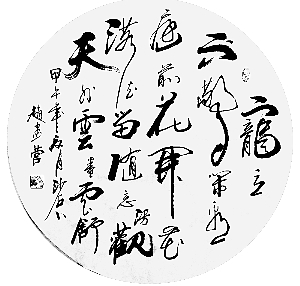 寵辱
不驚閒看
庭前花開花
落去留隨意觀
天外雲卷雲舒
甲午年月
趙